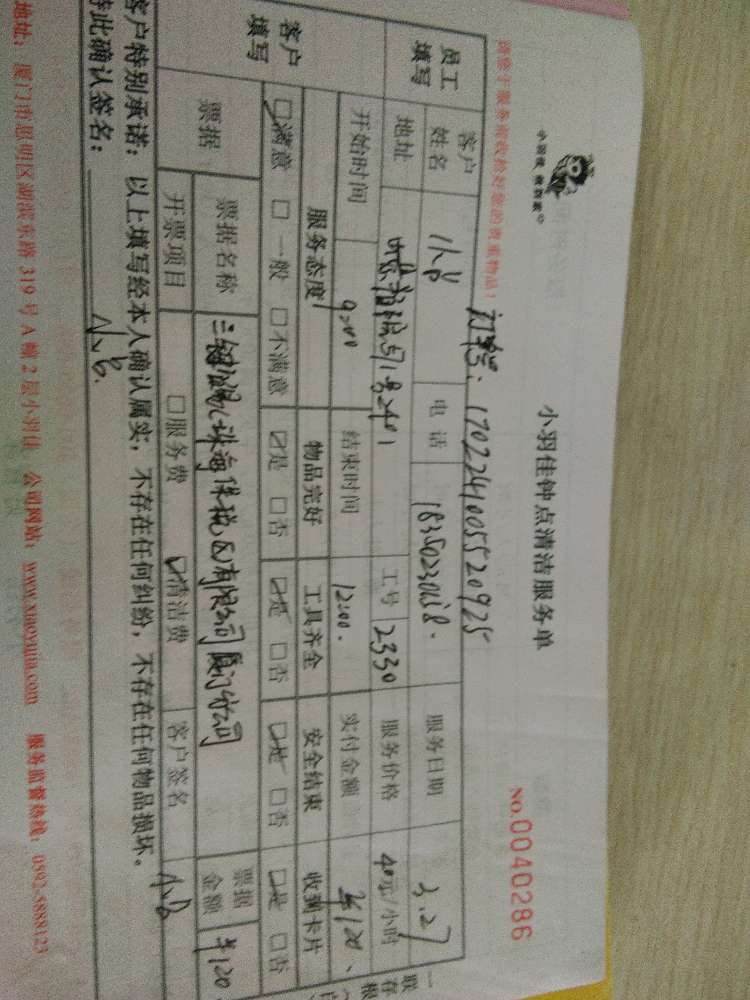 小羽佳 做到家
小羽佳钟点清洁服务单
NO.0040286
请您于服务前收拾好您的贵重物品!
订单号:1702241005520925
员工填写 客户姓名 小吕 电话 服务日期 3.27
地址 51号2401 工号 2330 服务价格 40元/小时
开始时间 9:00 结束时间 12:00. 实付金额 ¥120、
客户填写 服务态度 物品完好 工具齐全 安全结束 收到卡片
☑满意 □一般 □不满意 ☑是 □否 ☑是 □否 ☑是 □否 ☑是 □否
票据 票据名称 (珠海保税区)有限公司厦门分公司 票据金额 ¥120
开票项目 □服务费 ☑清洁费 客户签名 小吕
客户特别承诺:以上填写经本人确认属实,不存在任何纠纷,不存在任何物品损坏。
特此确认签名: 小吕.
地址:厦门市思明区湖滨东路 319 号 A 幢 2 层小羽佳 公司网站:www.xiaoyujia.com 服务监督热线:0592-5888123
一联存根